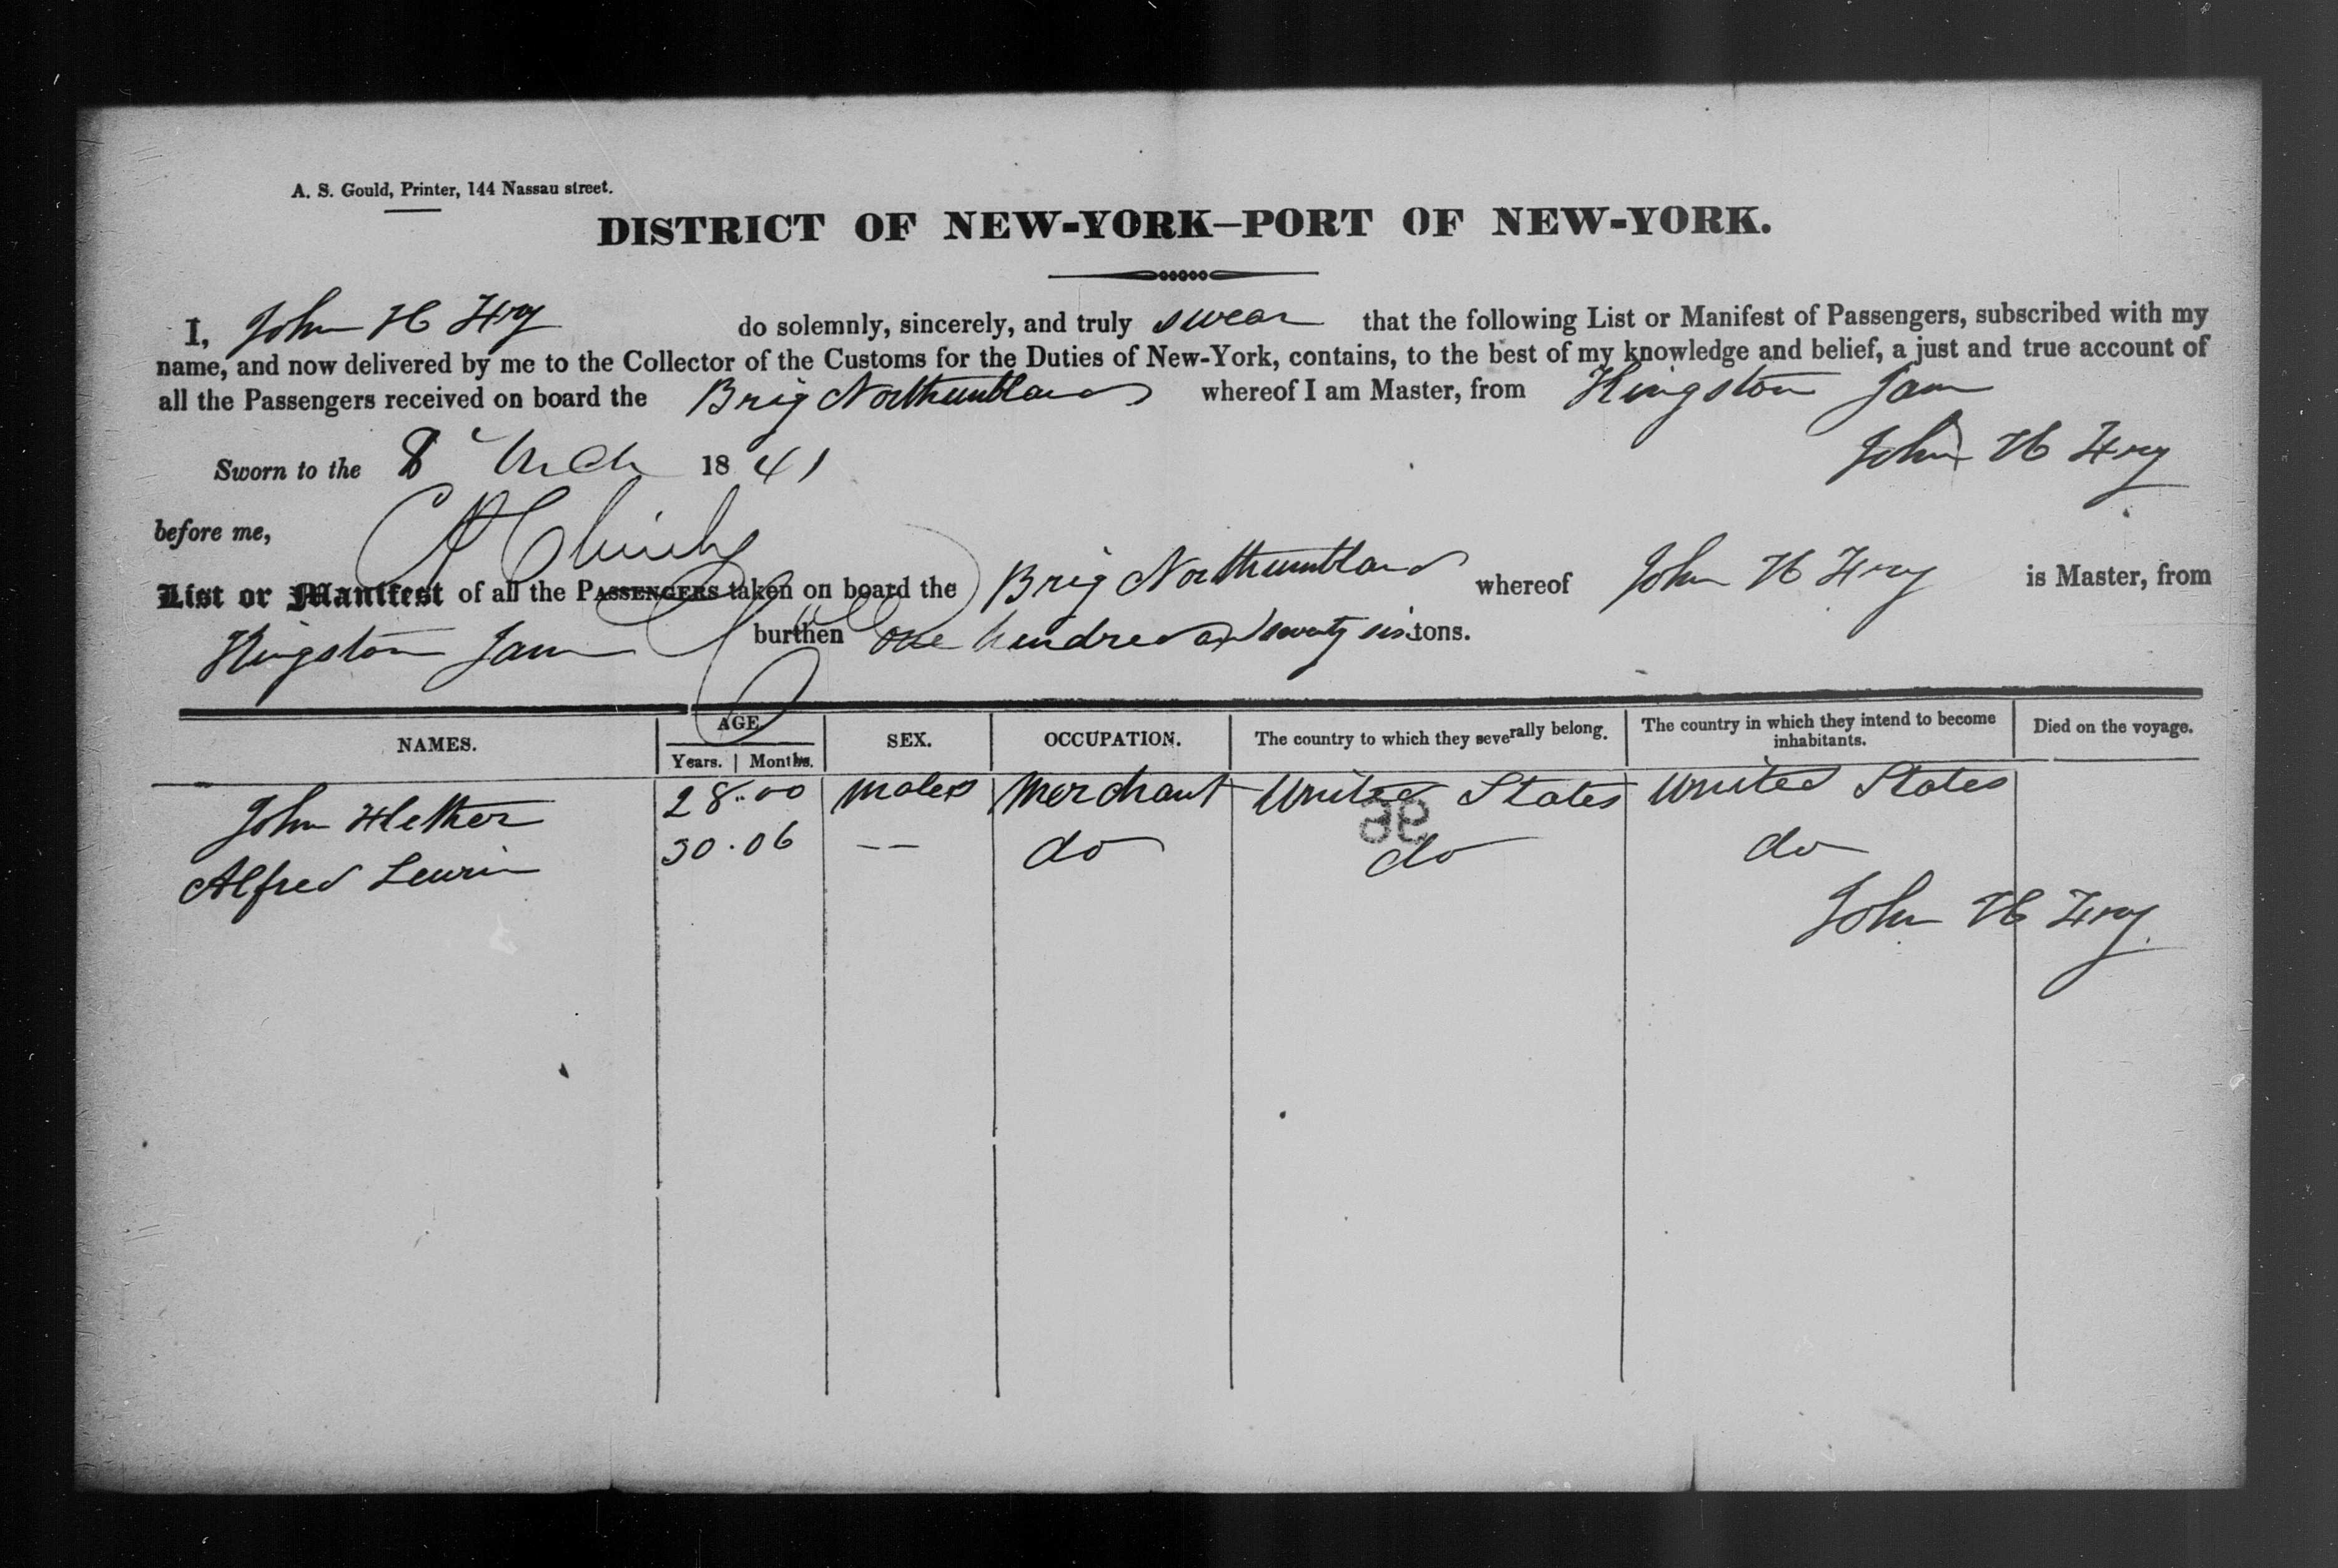 A. S. Gould, Printer, 144 Nassau street.
DISTRICT OF NEW-YORK—PORT OF NEW-YORK.
I, John H Fry do solemnly, sincerely, and truly swear that the following List or Manifest of Passengers, subscribed with my
name, and now delivered by me to the Collector of the Customs for the Duties of New-York, contains, to the best of my knowledge and belief, a just and true account of
all the Passengers received on board the Brig Northumbland whereof I am Master, from Kingston Jam
John H Fry
Sworn to the 8 Mch 1841
before me,
List or Manifest of all the PASSENGERS taken on board the Brig Northumbland whereof John H Fry is Master, from
Kingston Jam burthen one hundred and seventy six tons.
NAMES. AGE SEX. OCCUPATION. The country to which they severally belong. The country in which they intend to become inhabitants. Died on the voyage.
Years. Months.
John 28..00 males Merchant United States United States
96
Alfred 30.06 — — do do do
John H Fry